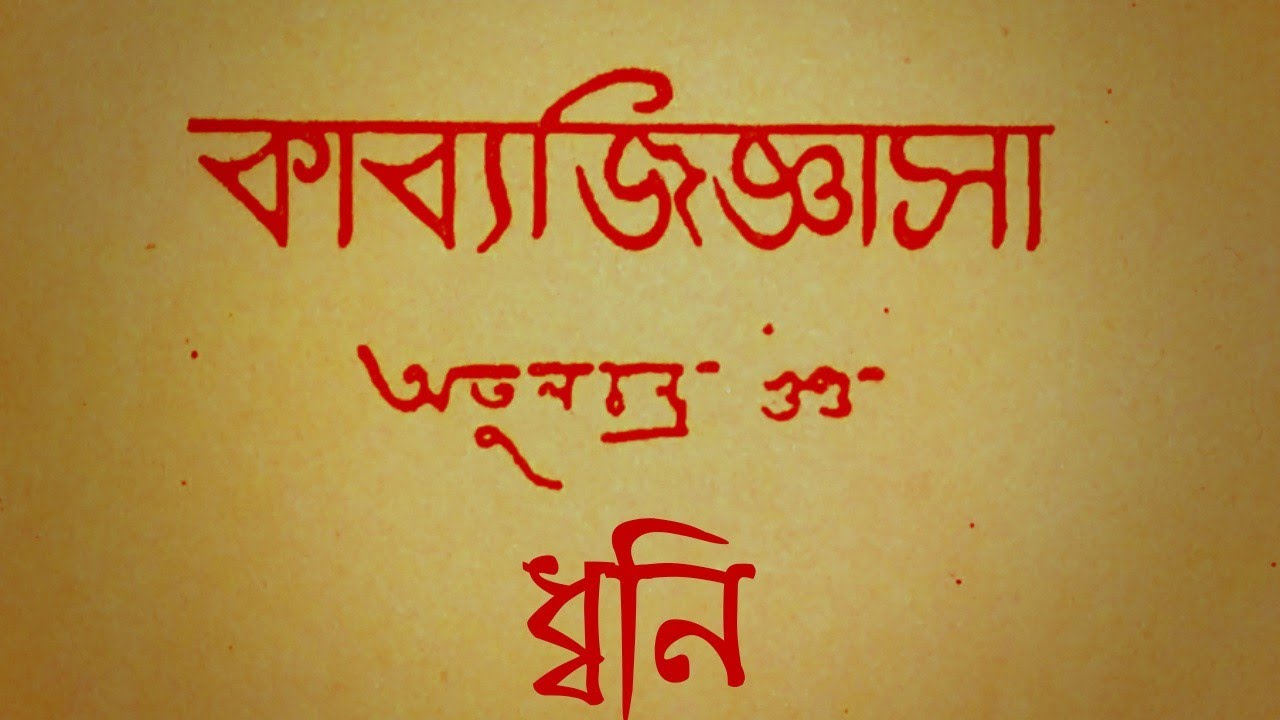 কাব্যজিজ্ঞাসা
অতুলচন্দ্র গুপ্ত
ধ্বনি